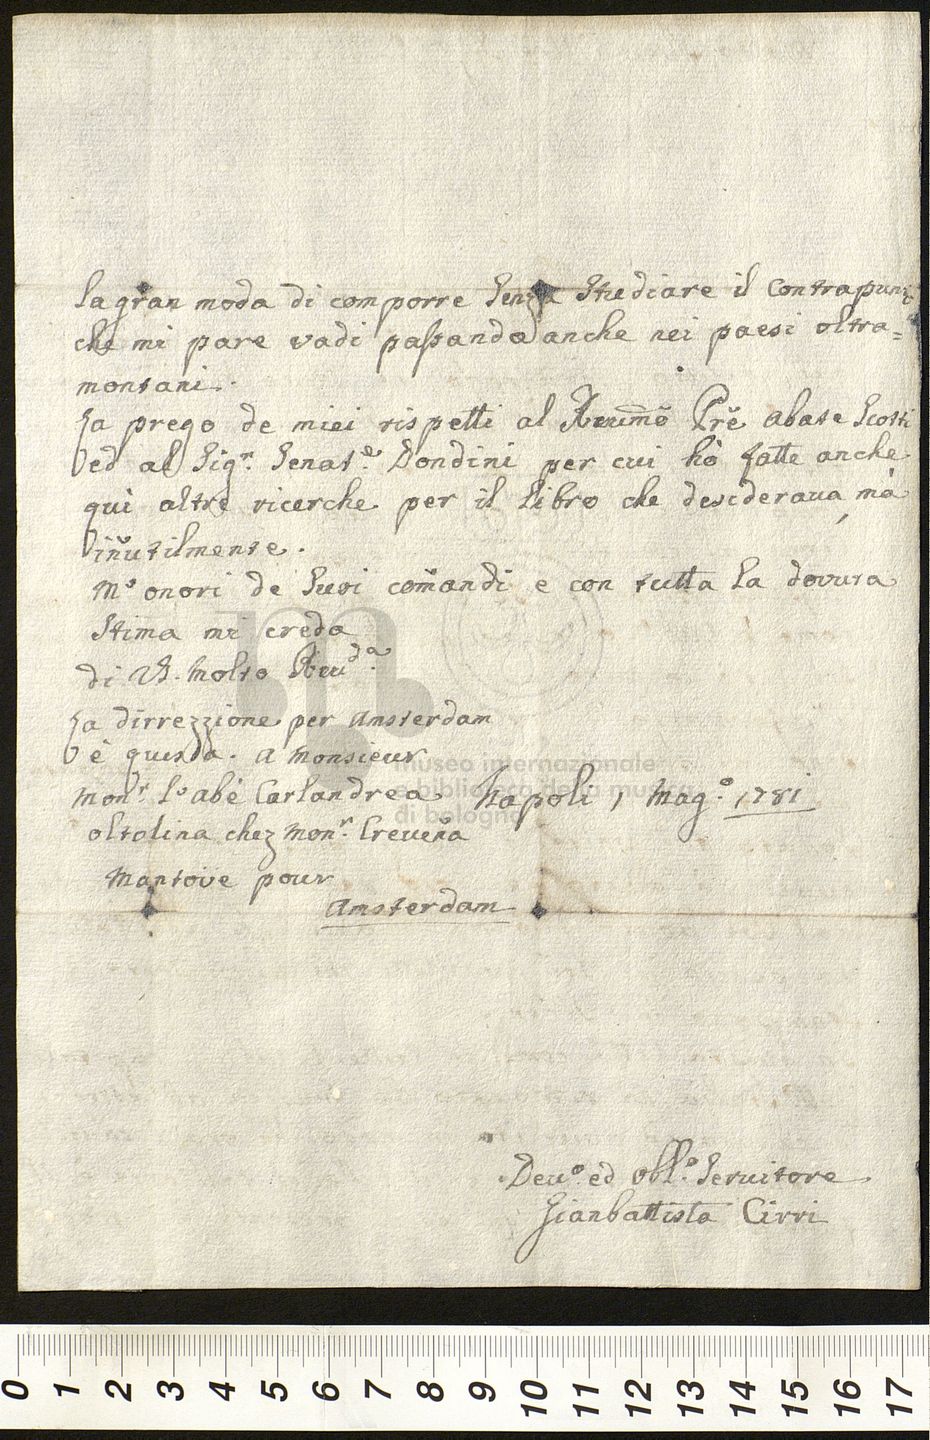 la gran moda di comporre senza studiare il Contrapunto
che mi pare vadi passando anche nei paesi oltra=
montani.
La prego de miei rispetti al Reũmo Prẽ abate Scotti
ed al Sigr. Senate. Dondini per cui hò fatte anche
quì altre ricerche per il libro che desiderava, mà
inutilmente.
Mo onori de suoi comandi e con tutta la dovuta
stima mi creda
di VS. Molto Reuda.
La dirrezzione per Amsterdam
è questa. A Monsieur
Monr l'abè Carlandrea
oltolina chez Monr. Crevena
Mantove pour
Amsterdam
Napoli 1 Mago. 1781
Devo. ed obblo. servitore
Gianbattista Cirri
museo internazionale
e biblioteca della musica
di bologna
0 1 2 3 4 5 6 7 8 9 10 11 12 13 14 15 16 17